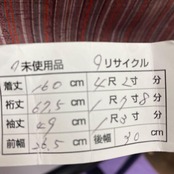 未使用品 リサイクル
着丈 160 cm 4尺2寸 分
裄丈 67.5 cm 1尺7寸8分
袖丈 49 cm 1尺3寸 分
前幅 26.5 cm 後幅 30 cm